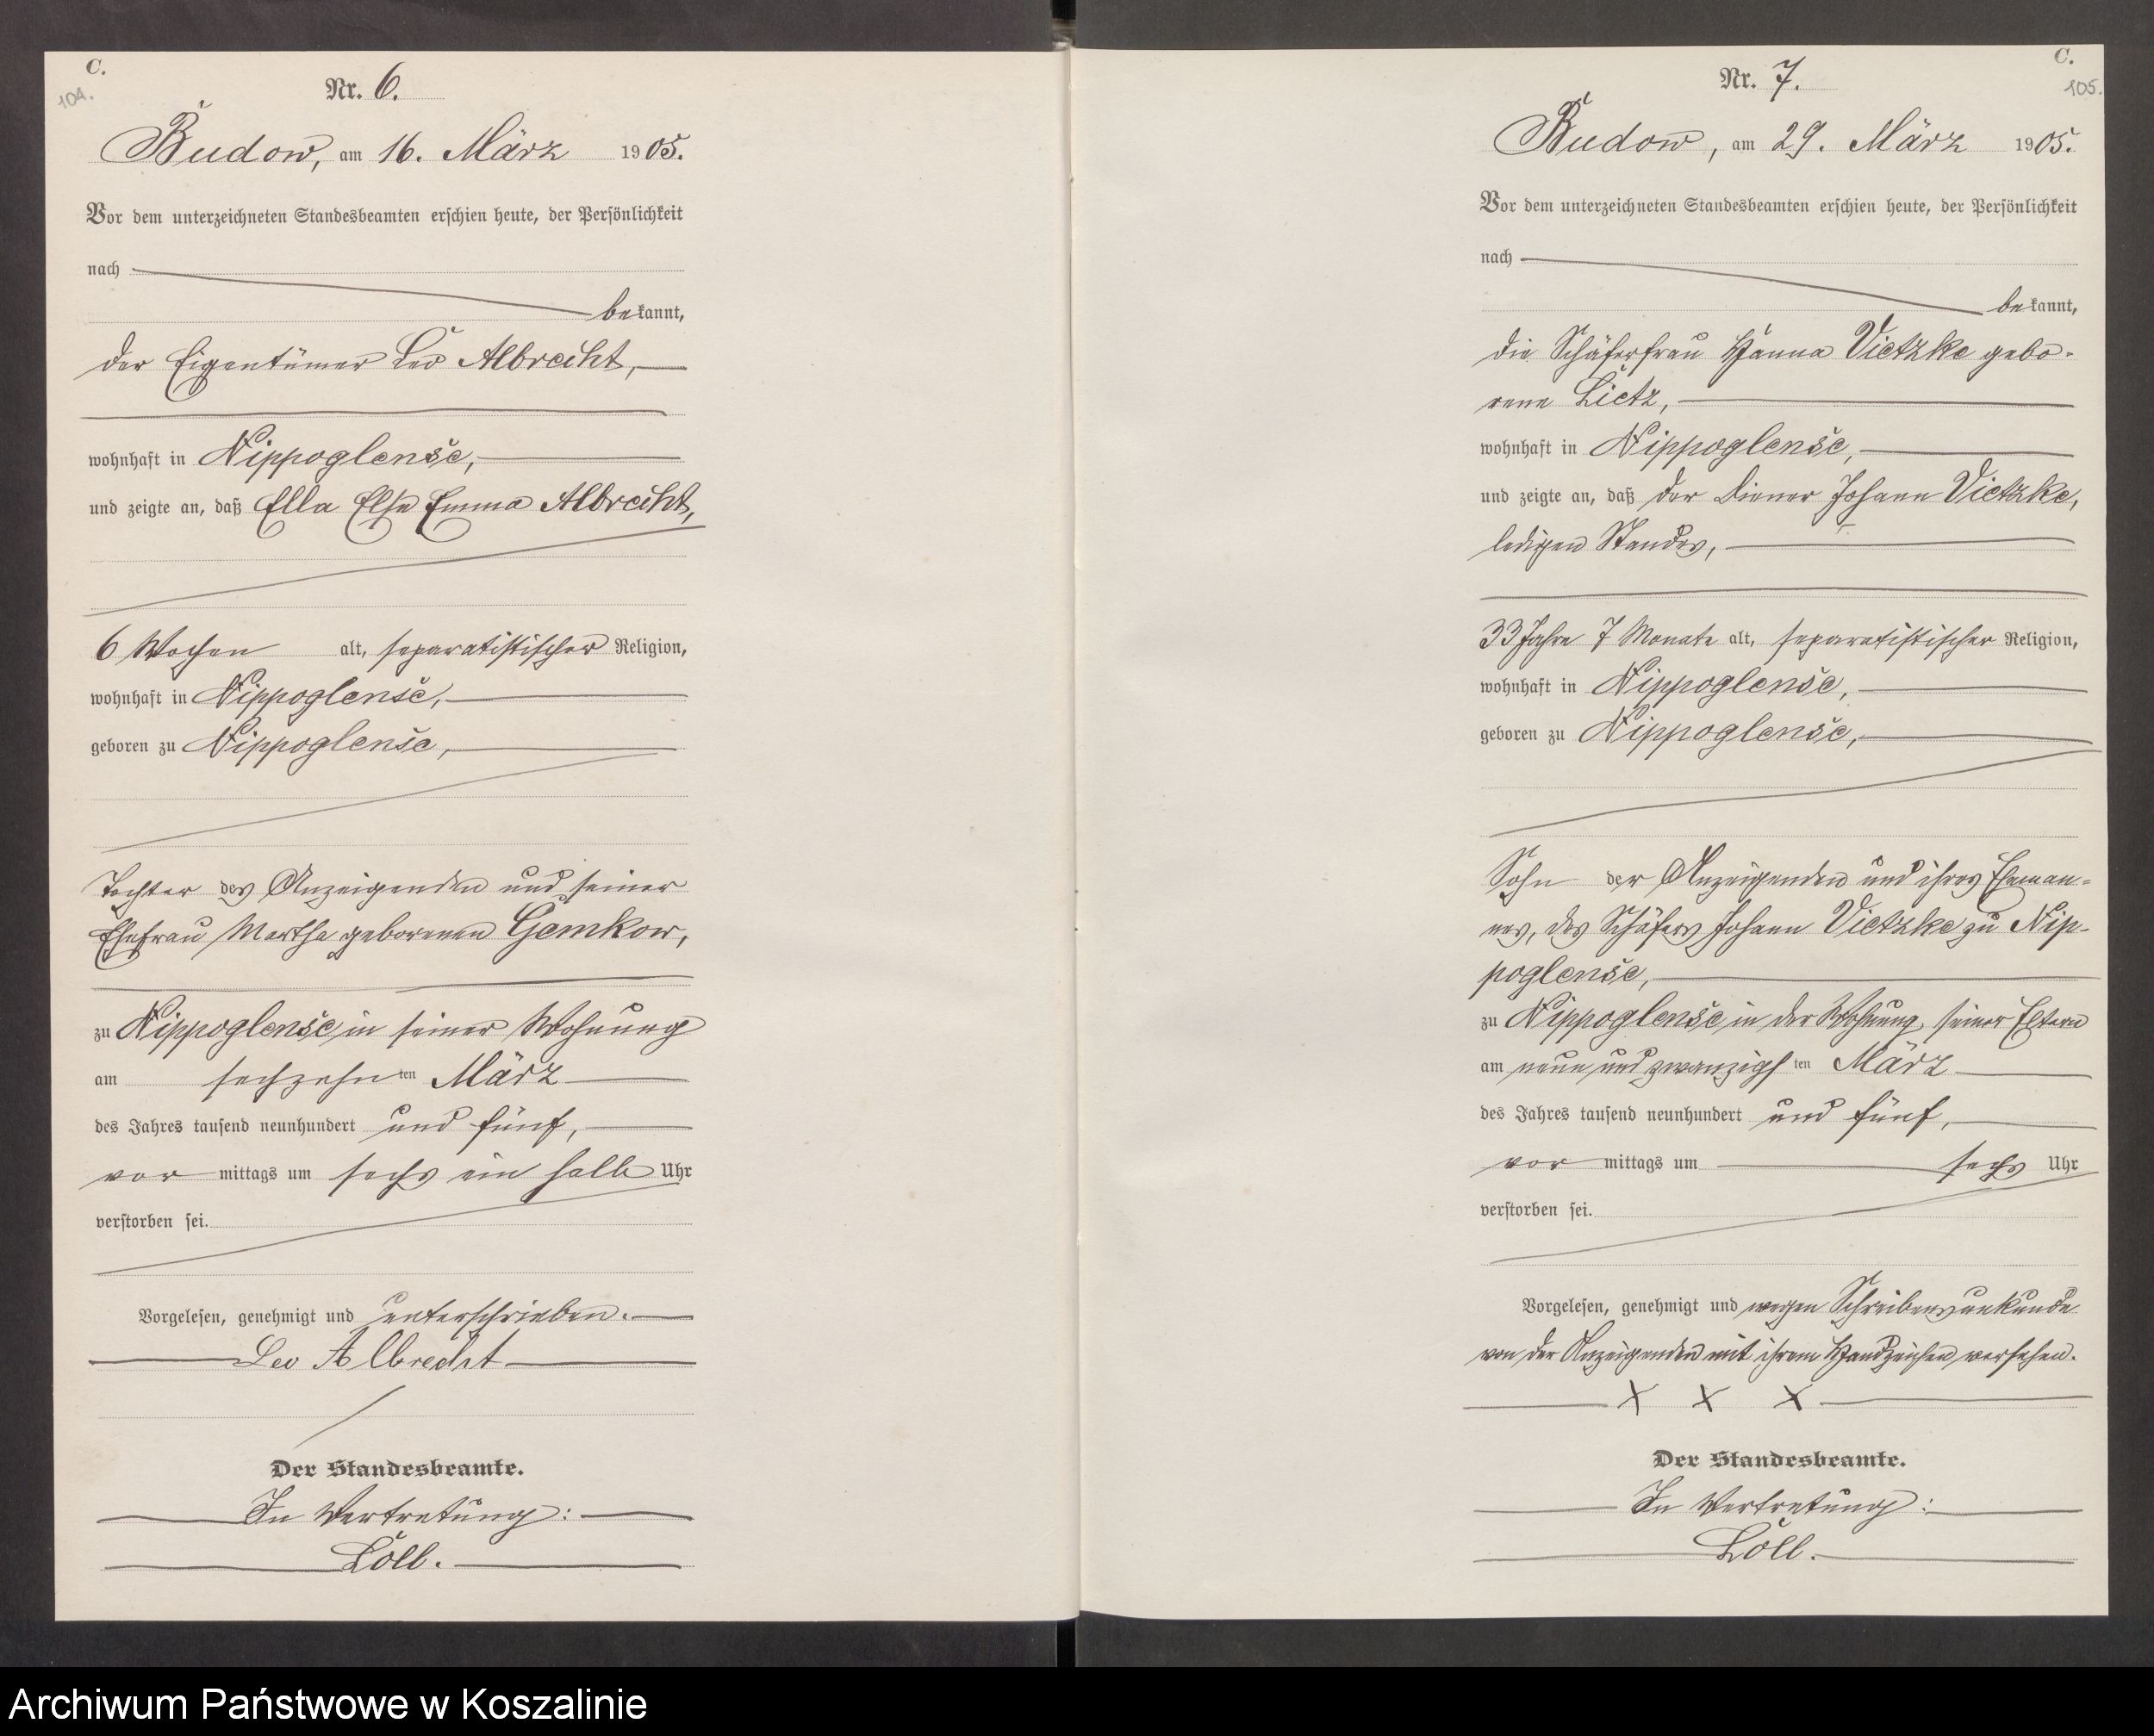 C.
104.
Nr. 6.
Budow, am 16. März 1905.
Vor dem unterzeichneten Standesbeamten erschien heute, der Persönlichkeit
nach
bekannt,
der Eigentümer Leo Albrecht,
wohnhaft in Nippoglense,
und zeigte an, daß Ella Else Emma Albrecht,
6 Wochen alt, separatistischer Religion,
wohnhaft in Nippoglense,
geboren zu Nippoglense,
Tochter des Anzeigenden und seiner
Ehefrau Martha geborenen Gemkow,
zu Nippoglense in seiner Wohnung
am sechzehnten März
des Jahres tausend neunhundert und fünf,
vormittags um sechs ein halb Uhr
verstorben sei.
Vorgelesen, genehmigt und unterschrieben.
Leo Albrecht
Der Standesbeamte.
In Vertretung:
Löll.
C.
105.
Nr. 7.
Budow, am 29. März 1905.
Vor dem unterzeichneten Standesbeamten erschien heute, der Persönlichkeit
nach
bekannt,
die Schäferfrau Hanna Vietzke gebo-
rene Lietz,
wohnhaft in Nippoglense,
und zeigte an, daß der Diener Johann Vietzke,
ledigen Standes,
33 Jahre 7 Monate alt, separatistischer Religion,
wohnhaft in Nippoglense,
geboren zu Nippoglense,
Sohn der Anzeigenden und ihres Eheman-
nes, des Schäfers Johann Vietzke zu Nip-
poglense,
zu Nippoglense in der Wohnung seiner Eltern
am neun und zwanzigsten März
des Jahres tausend neunhundert und fünf,
vormittags um sechs Uhr
verstorben sei.
Vorgelesen, genehmigt und wegen Schreibensunkunde
von der Anzeigenden mit ihrem Handzeichen versehen.
X X X
Der Standesbeamte.
In Vertretung:
Löll.
Archiwum Państwowe w Koszalinie